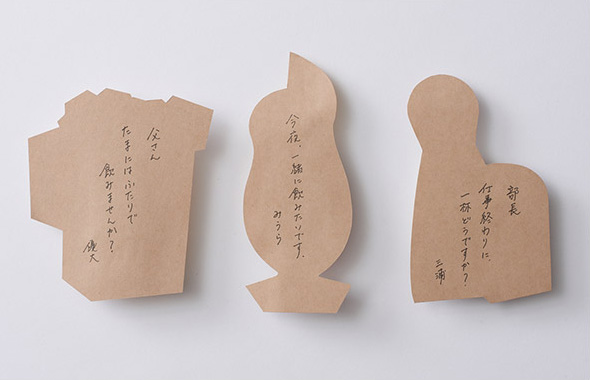 父さん
たまにはふたりで
飲みませんか?
健太
今夜、一緒に飲みたいです。
みうら
部長
仕事終わりに、
一杯どうですか?
三浦